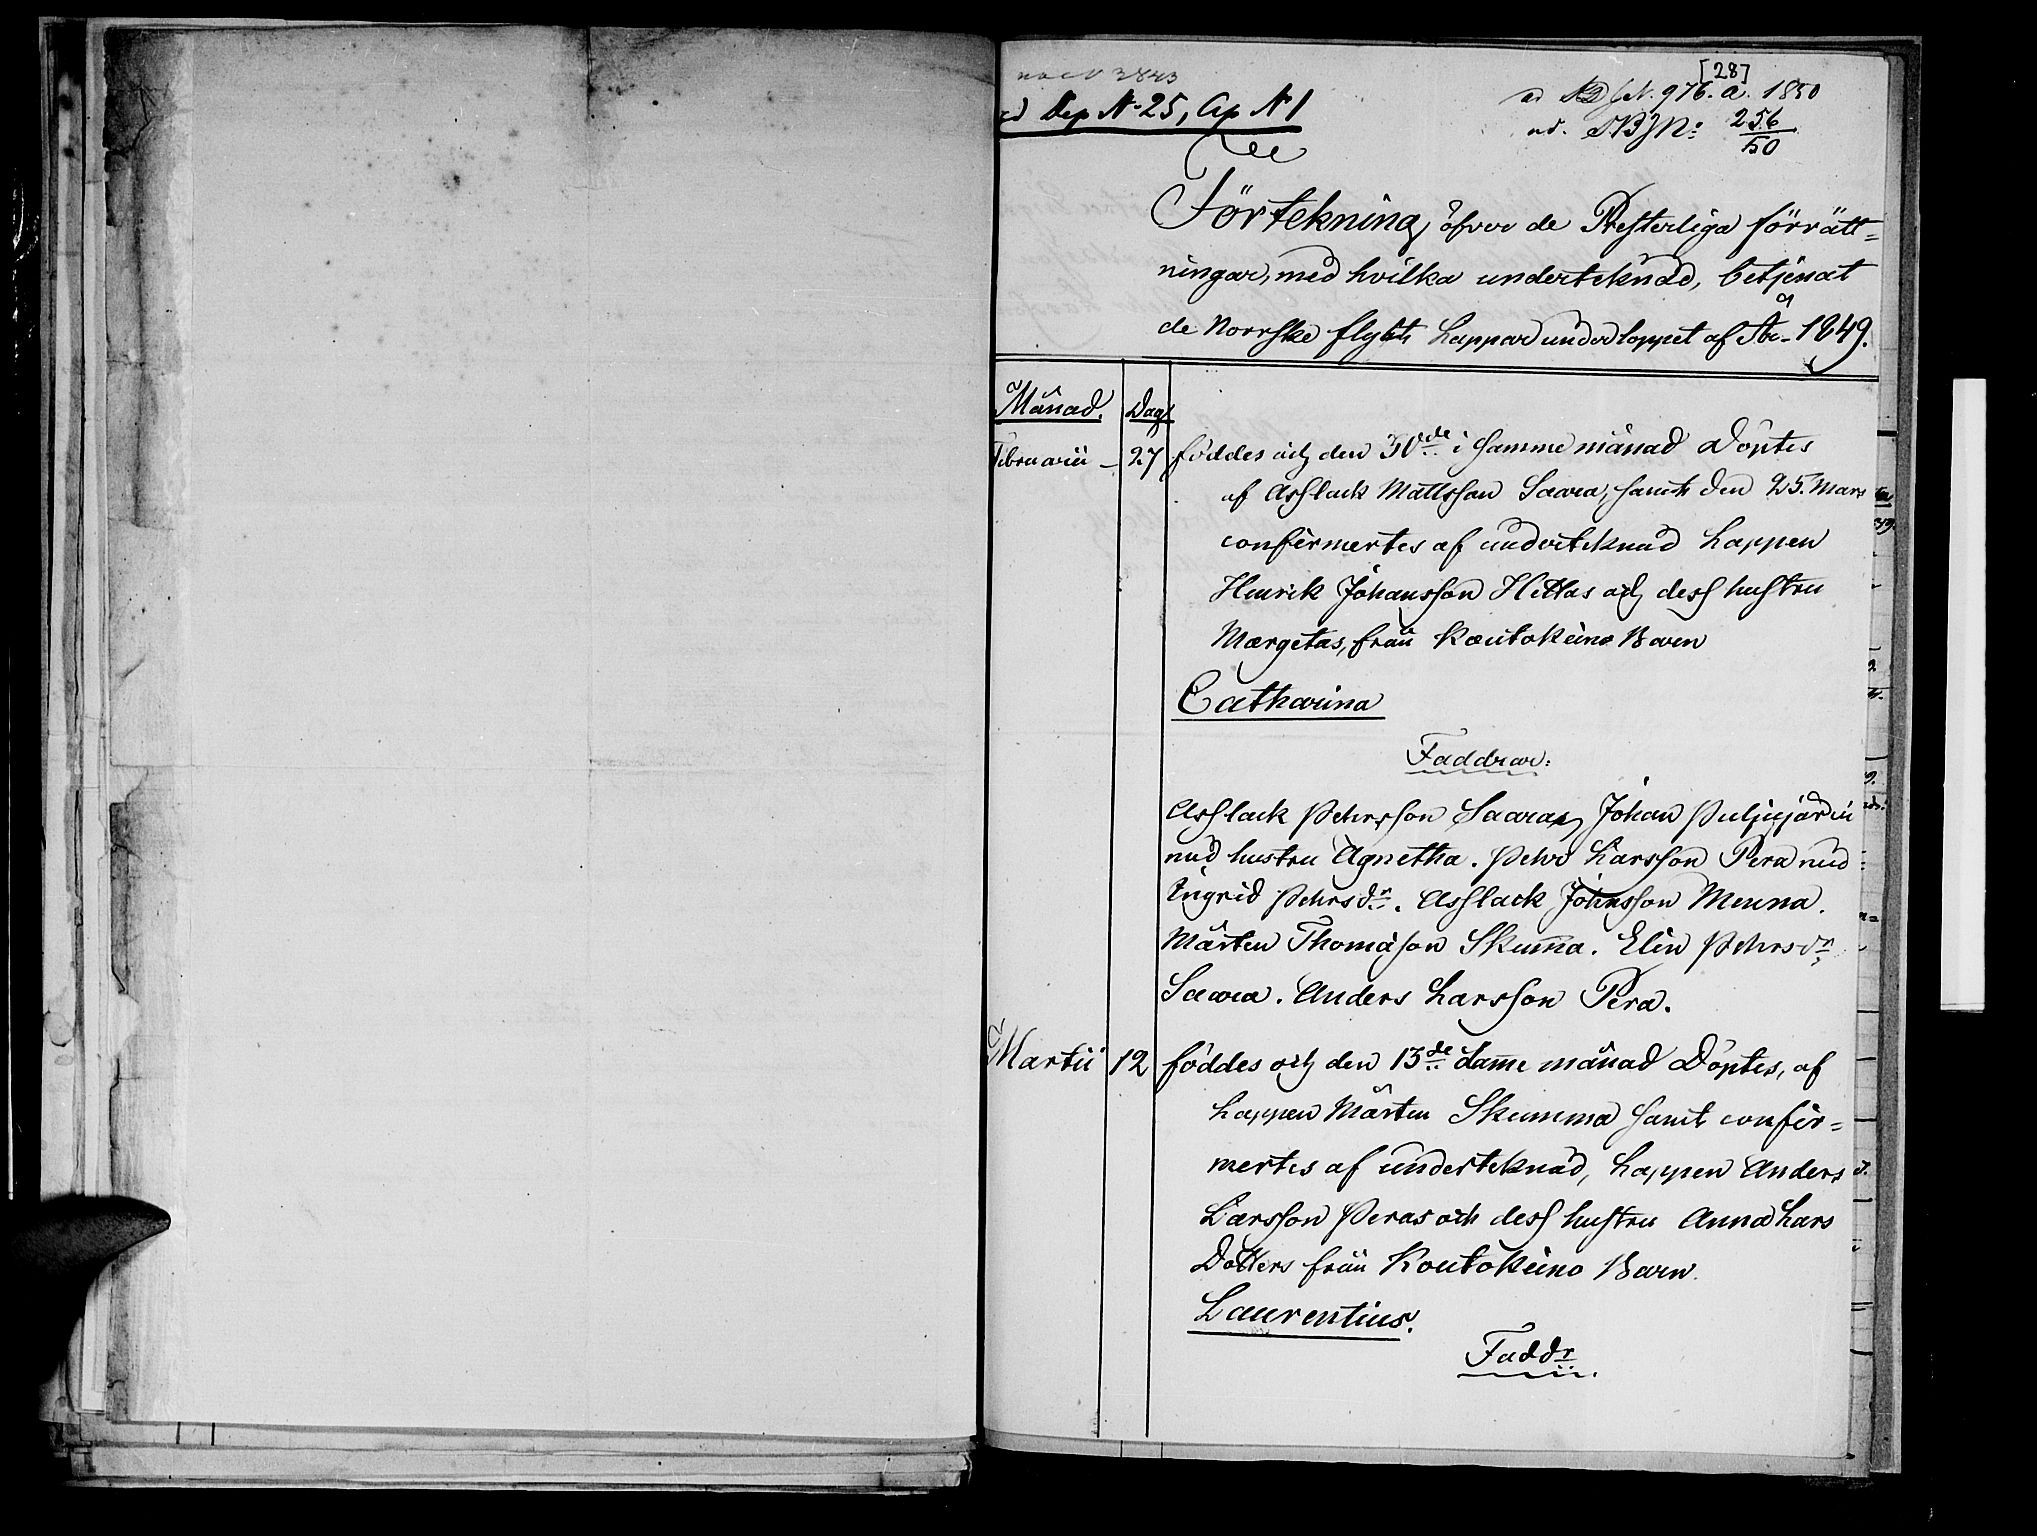 [28]
ad Dep No 25, Cap No 1
N. 976. a. 1850
256
50
Förtekning öfver de Presterliga förrätt=
ningar, med hvilka underteknad, betjenat
de Norrske flytt Lappar under loppet af År 1849.
Månad. Dag
Februarii – 27 föddes och den 30de i samme månad Döptes
af Asslack Mattsson Saara, samt den 25. Mars
confirmertes af underteknad Lappen
Henrik Johansson Hettas och dess hustru
Margetas, från Kautokeino Barn
Catharina
Faddrar:
Asslack Pehrsson Saara, Johan Puljujärvi
med hustru Agnetha. Pehr Larsson Pera med
Ingrid Pehrsdr. Asslack Johnsson Menna.
Mårten Thomasson Skum̄a. Elin Pehrsdr
Saara. Anders Larsson Pera.
Martii 12 föddes och den 13de sam̄e månad Döptes, af
Lappen Mårten Skumma samt confir=
mertes af underteknad, Lappen Anders
Larsson Peras och dess hustru Anna Lars
Dotters från Koutokeino Barn.
Laurentius.
Faddr